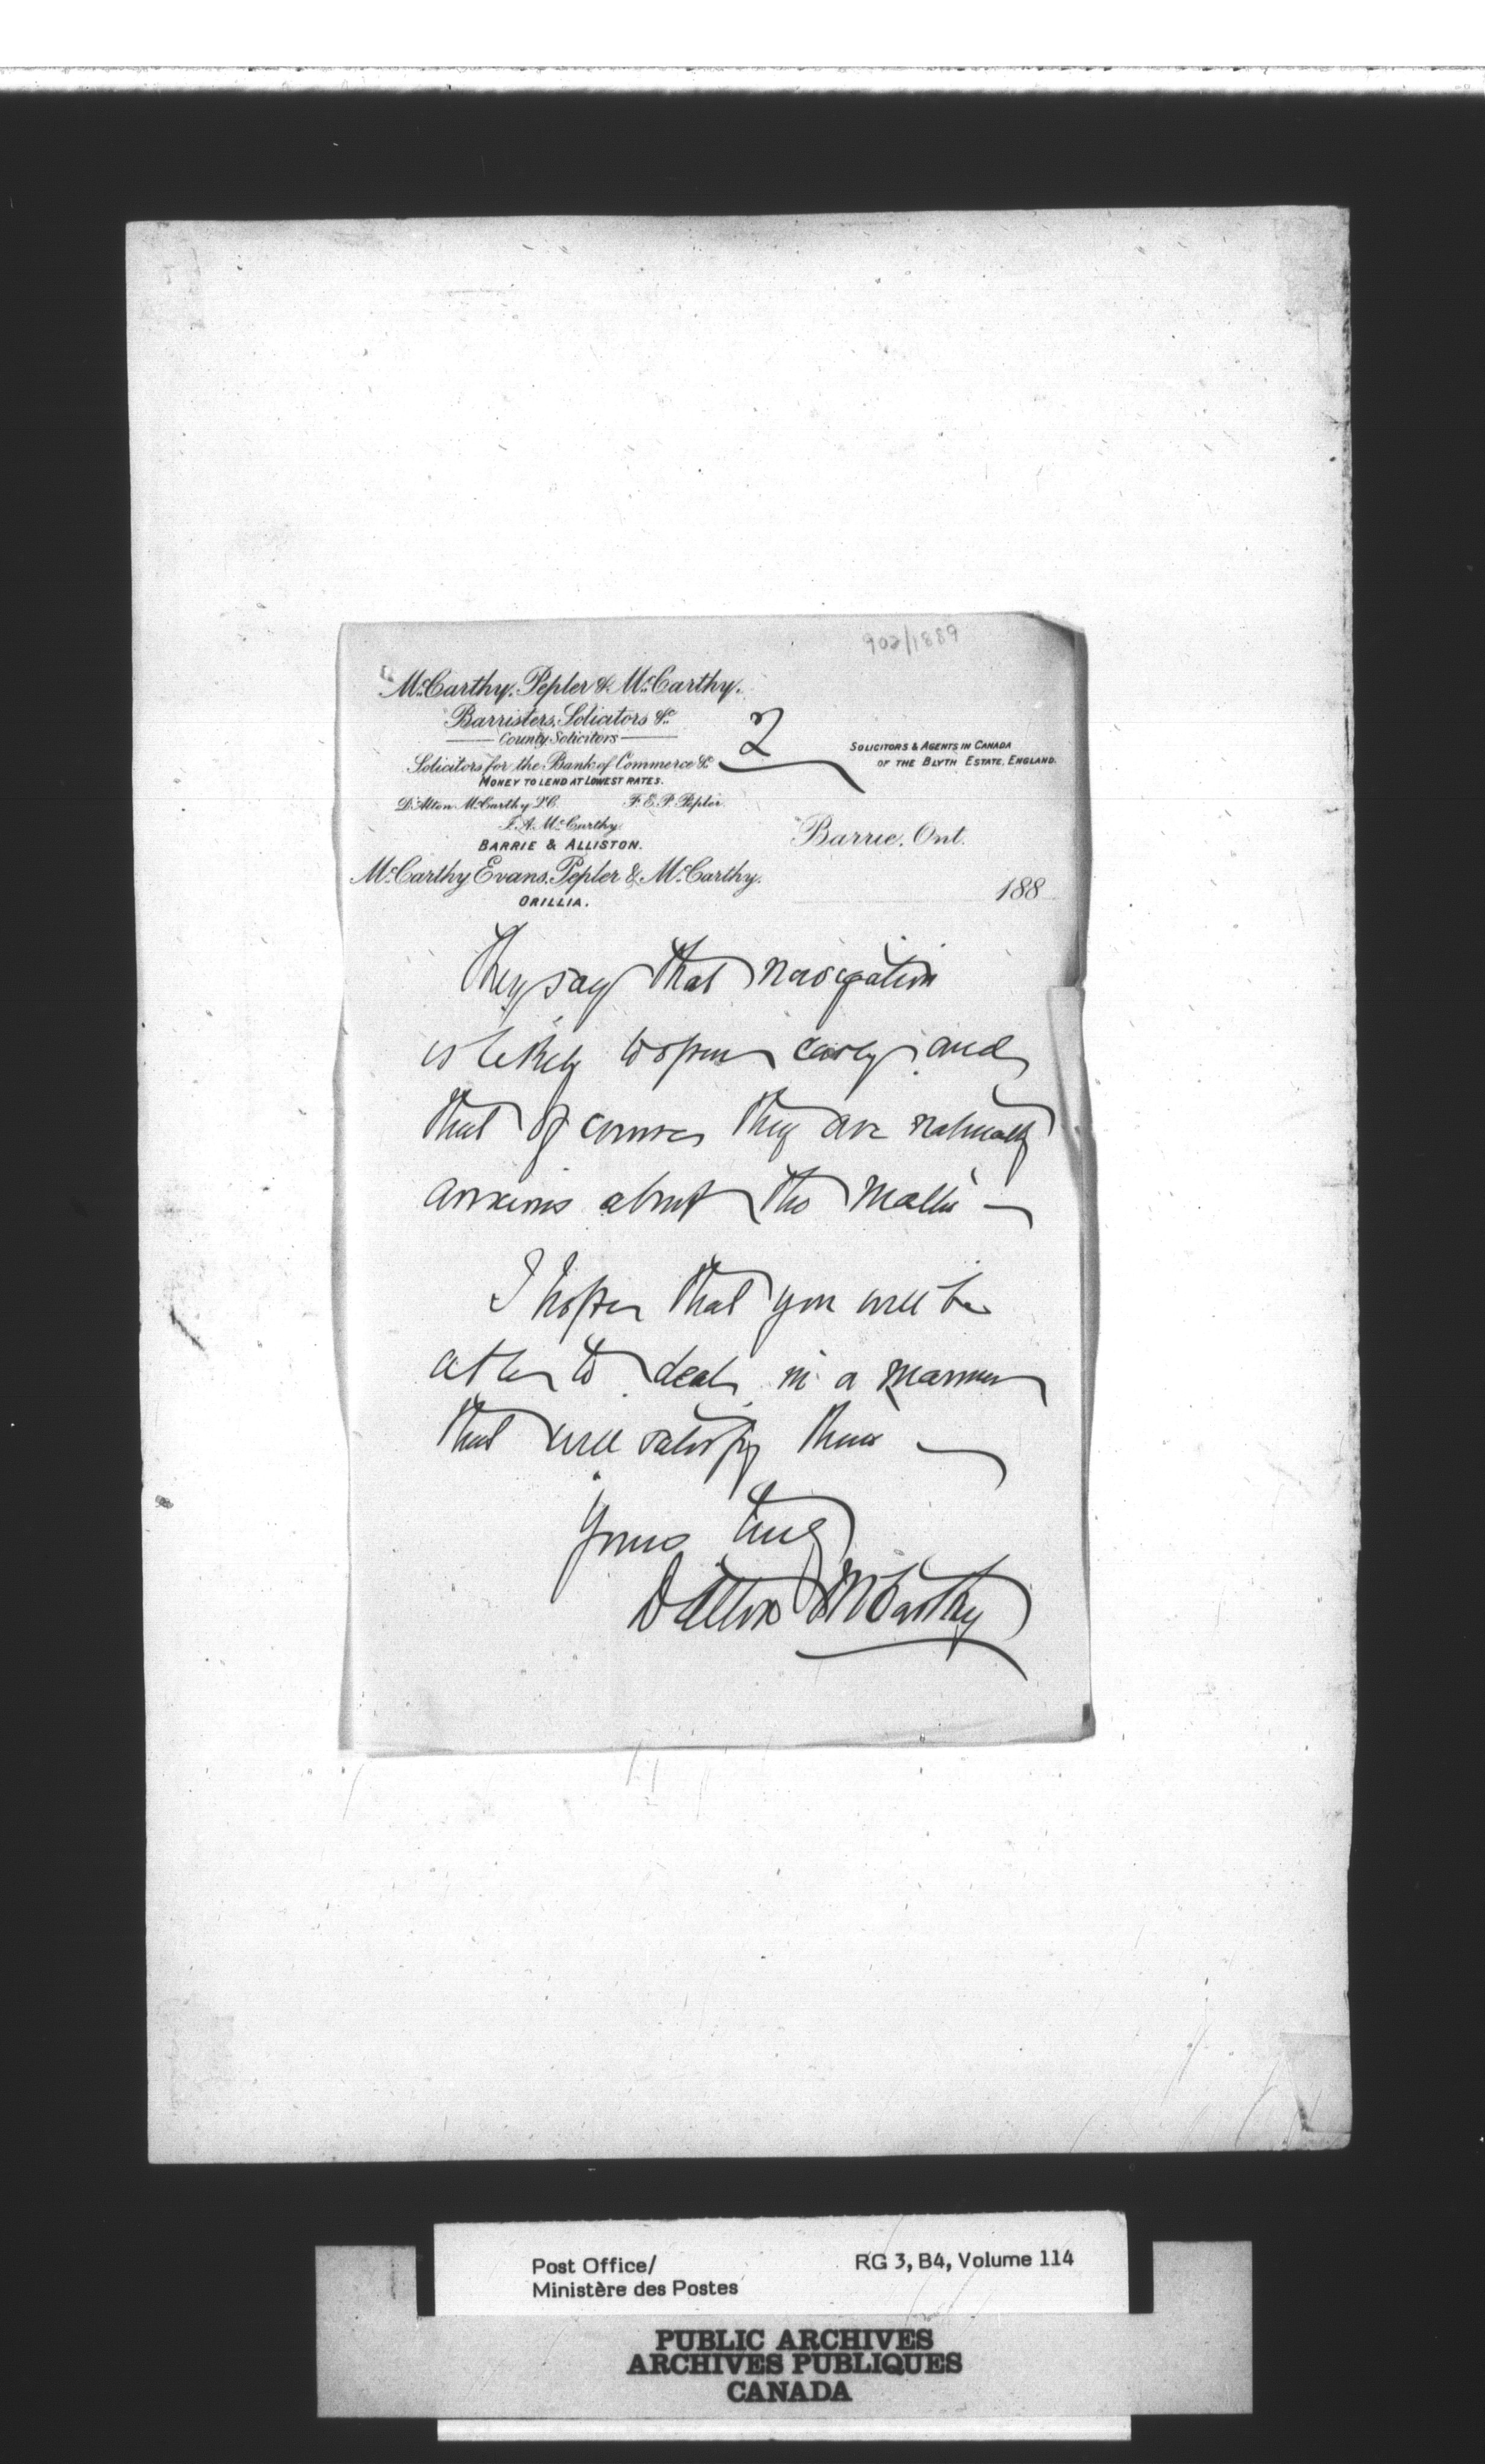 902/1889
McCarthy, Pepler & McCarthy.
Barristers, Solicitors &c.
County Solicitors
Solicitors for the Bank of Commerce &c.
MONEY TO LEND AT LOWEST RATES.
D'Alton McCarthy Q.C. F. E. P. Pepler.
J. A. McCarthy.
BARRIE & ALLISTON.
McCarthy Evans, Pepler & McCarthy.
ORILLIA.
2
SOLICITORS & AGENTS IN CANADA
OF THE BLYTH ESTATE, ENGLAND.
Barrie, Ont.
188
They say that navigation
is likely to open early and
that of course they are naturally
anxious about the matter —
I hope that you will be
able to deal in a manner
that will satisfy them —
Yours truly
Dalton McCarthy
Post Office/
Ministère des Postes
RG 3, B4, Volume 114
PUBLIC ARCHIVES
ARCHIVES PUBLIQUES
CANADA